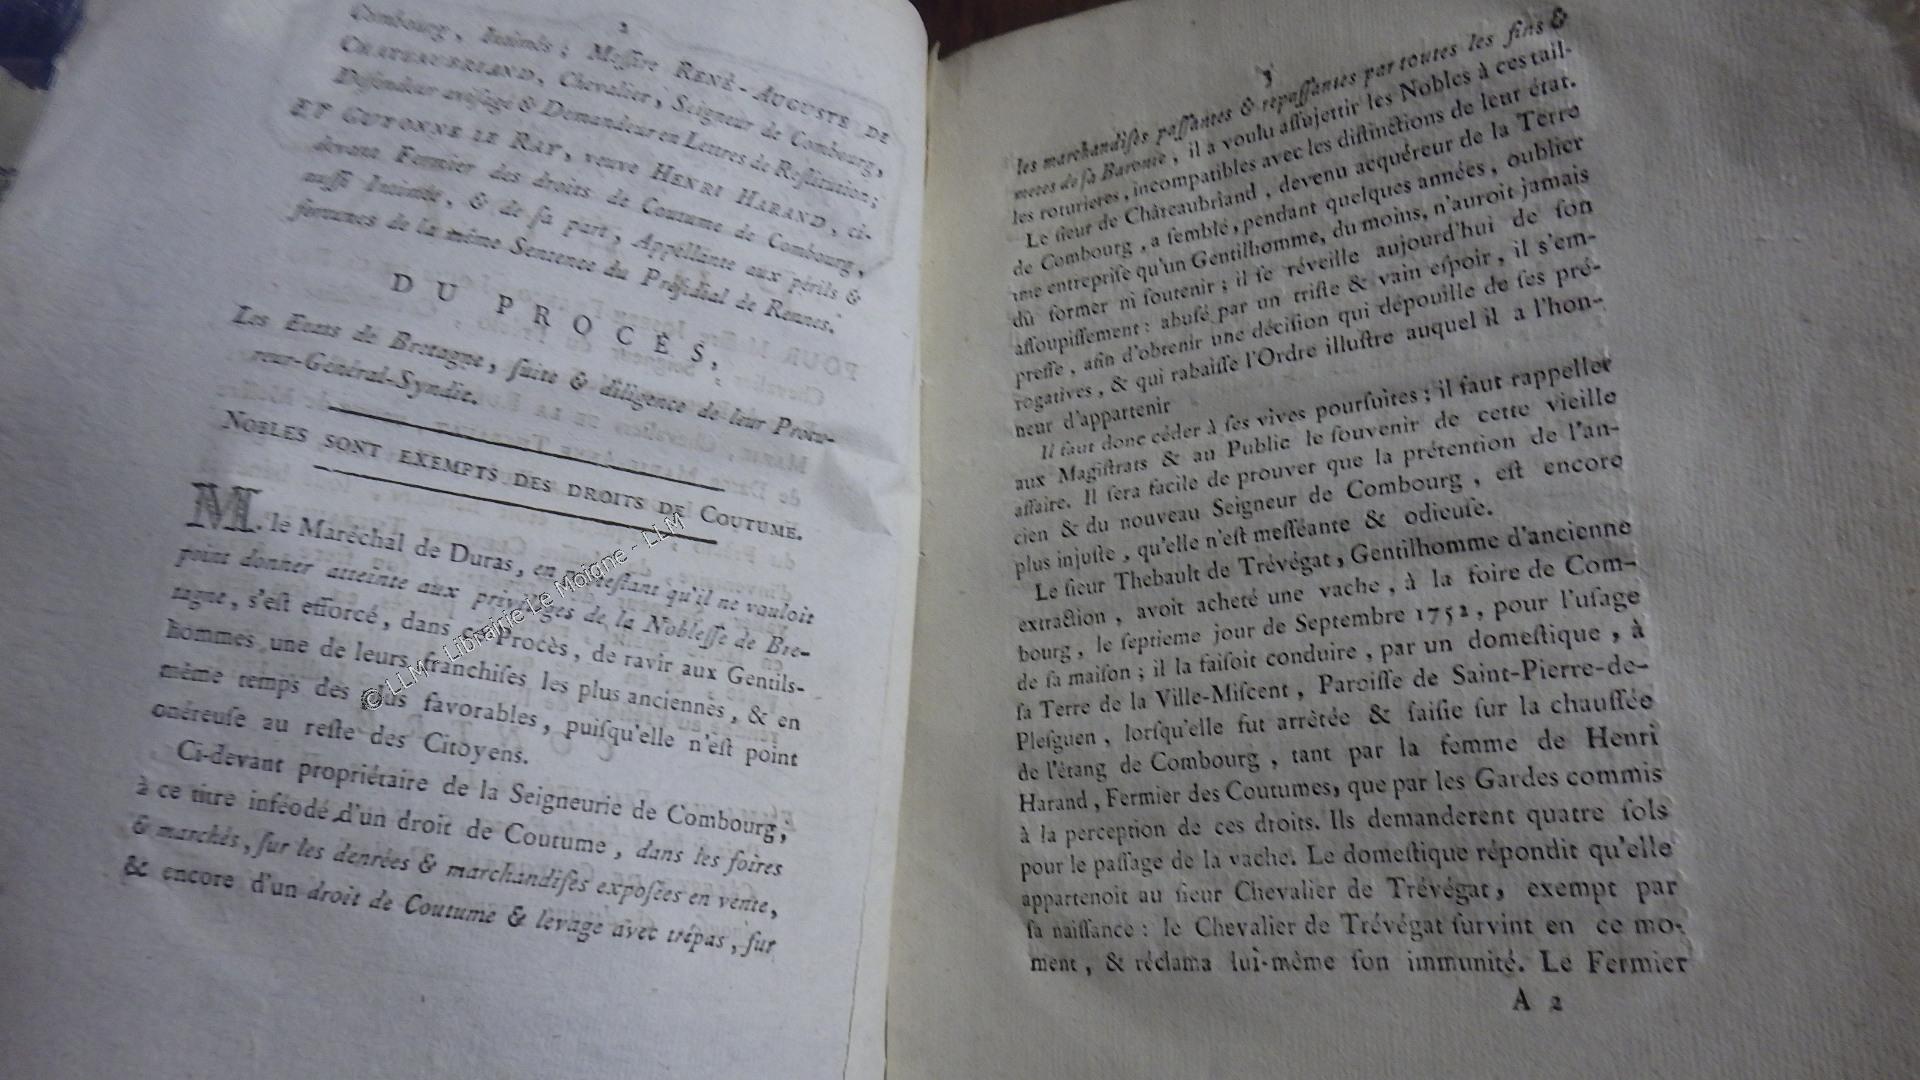 2
Combourg, Intimés; Messire RENÉ-AUGUSTE DE
CHATEAUBRIAND, Chevalier, Seigneur de Combourg,
Défendeur avisagé & Demandeur en Lettres de Restitution;
ET GUYONNE LE RAY, veuve HENRI HARAND, ci-
devant Fermier des droits de Coutume de Combourg,
aussi Intimée, & de sa part, Appellante aux périls &
fortunes de la même Sentence du Présidial de Rennes.
DU PROCÉS,
Les Etats de Bretagne, suite & diligence de leur Procu-
reur-Général-Syndic.
NOBLES SONT EXEMPTS DES DROITS DE COUTUME.
M. le Maréchal de Duras, en protestant qu'il ne vouloit
point donner atteinte aux privileges de la Noblesse de Bre-
tagne, s'est efforcé, dans ce Procès, de ravir aux Gentils-
hommes une de leurs franchises les plus anciennes, & en
même temps des plus favorables, puisqu'elle n'est point
onéreuse au reste des Citoyens.
Ci-devant propriétaire de la Seigneurie de Combourg,
à ce titre inféodé d'un droit de Coutume, dans les foires
& marchés, sur les denrées & marchandises exposées en vente,
& encore d'un droit de Coutume & levage avec trépas, sur
© LLM - Librairie Le Moigne - LLM
3
les marchandises passantes & repassantes par toutes les fins &
metes de sa Baronie, il a voulu assujettir les Nobles à ces tail-
les roturieres, incompatibles avec les distinctions de leur état.
Le sieur de Châteaubriand, devenu acquéreur de la Terre
de Combourg, a semblé, pendant quelques années, oublier
une entreprise qu'un Gentilhomme, du moins, n'auroit jamais
dû former ni soutenir; il se réveille aujourd'hui de son
assoupissement: abusé par un triste & vain espoir, il s'em-
presse, afin d'obtenir une décision qui dépouille de ses pré-
rogatives, & qui rabaisse l'Ordre illustre auquel il a l'hon-
neur d'appartenir
Il faut donc céder à ses vives poursuites; il faut rappeller
aux Magistrats & au Public le souvenir de cette vieille
affaire. Il sera facile de prouver que la prétention de l'an-
cien & du nouveau Seigneur de Combourg, est encore
plus injuste, qu'elle n'est messéante & odieuse.
Le sieur Thebault de Trévégat, Gentilhomme d'ancienne
extraction, avoit acheté une vache, à la foire de Com-
bourg, le septieme jour de Septembre 1752, pour l'usage
de sa maison; il la faisoit conduire, par un domestique, à
sa Terre de la Ville-Miscent, Paroisse de Saint-Pierre-de-
Plesguen, lorsqu'elle fut arrêtée & saisie sur la chaussée
de l'étang de Combourg, tant par la femme de Henri
Harand, Fermier des Coutumes, que par les Gardes commis
à la perception de ces droits. Ils demanderent quatre sols
pour le passage de la vache. Le domestique répondit qu'elle
appartenoit au sieur Chevalier de Trévégat, exempt par
sa naissance: le Chevalier de Trévégat survint en ce mo-
ment, & réclama lui-même son immunité. Le Fermier
A 2